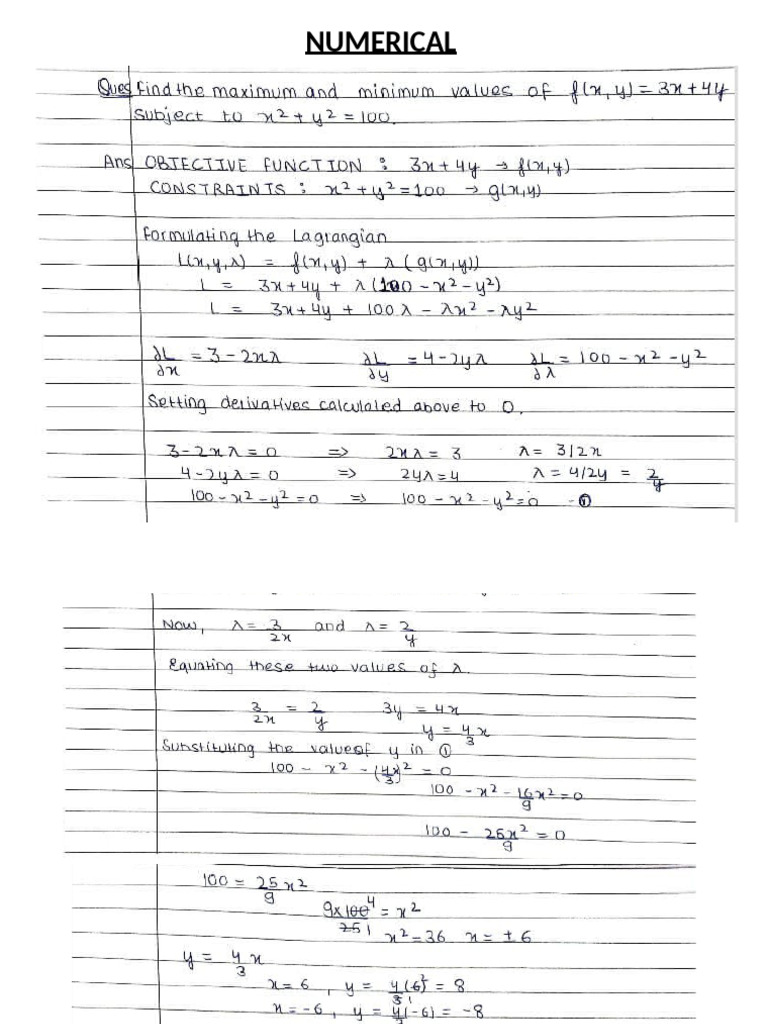 NUMERICAL
Ques Find the maximum and minimum values of f(x,y) = 3x + 4y
subject to x² + y² = 100.
Ans OBJECTIVE FUNCTION : 3x + 4y → f(x,y)
CONSTRAINTS : x² + y² = 100 → g(x,y)
Formulating the Lagrangian
L(x,y,λ) = f(x,y) + λ ( g(x,y))
L = 3x + 4y + λ (100 - x² - y²)
L = 3x + 4y + 100 λ - λx² - λy²
∂L/∂x = 3 - 2xλ ∂L/∂y = 4 - 2yλ ∂L/∂λ = 100 - x² - y²
Setting derivatives calculated above to 0.
3 - 2xλ = 0 ⇒ 2xλ = 3 λ = 3/2x
4 - 2yλ = 0 ⇒ 2yλ = 4 λ = 4/2y = 2/y
100 - x² - y² = 0 ⇒ 100 - x² - y² = 0 - ①
Now, λ = 3/2x and λ = 2/y
Equating these two values of λ.
3/2x = 2/y 3y = 4x
y = 4/3 x
Substituting the value of y in ①
100 - x² - (4x/3)² = 0
100 - x² - 16/9 x² = 0
100 - 25x²/9 = 0
100 = 25/9 x²
9x100 4/25 1 = x²
x² = 36 x = ± 6
y = 4/3 x
x = 6 , y = 4(6)2/3 1 = 8
x = -6 , y = 4/3 (-6) = -8